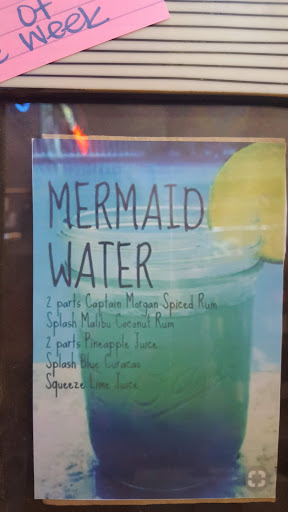 of
Week
MERMAID
WATER
2 parts Captain Morgan Spiced Rum
Splash Malibu Coconut Rum
2 parts Pineapple Juice
Splash Blue Curacao
Squeeze Lime Juice